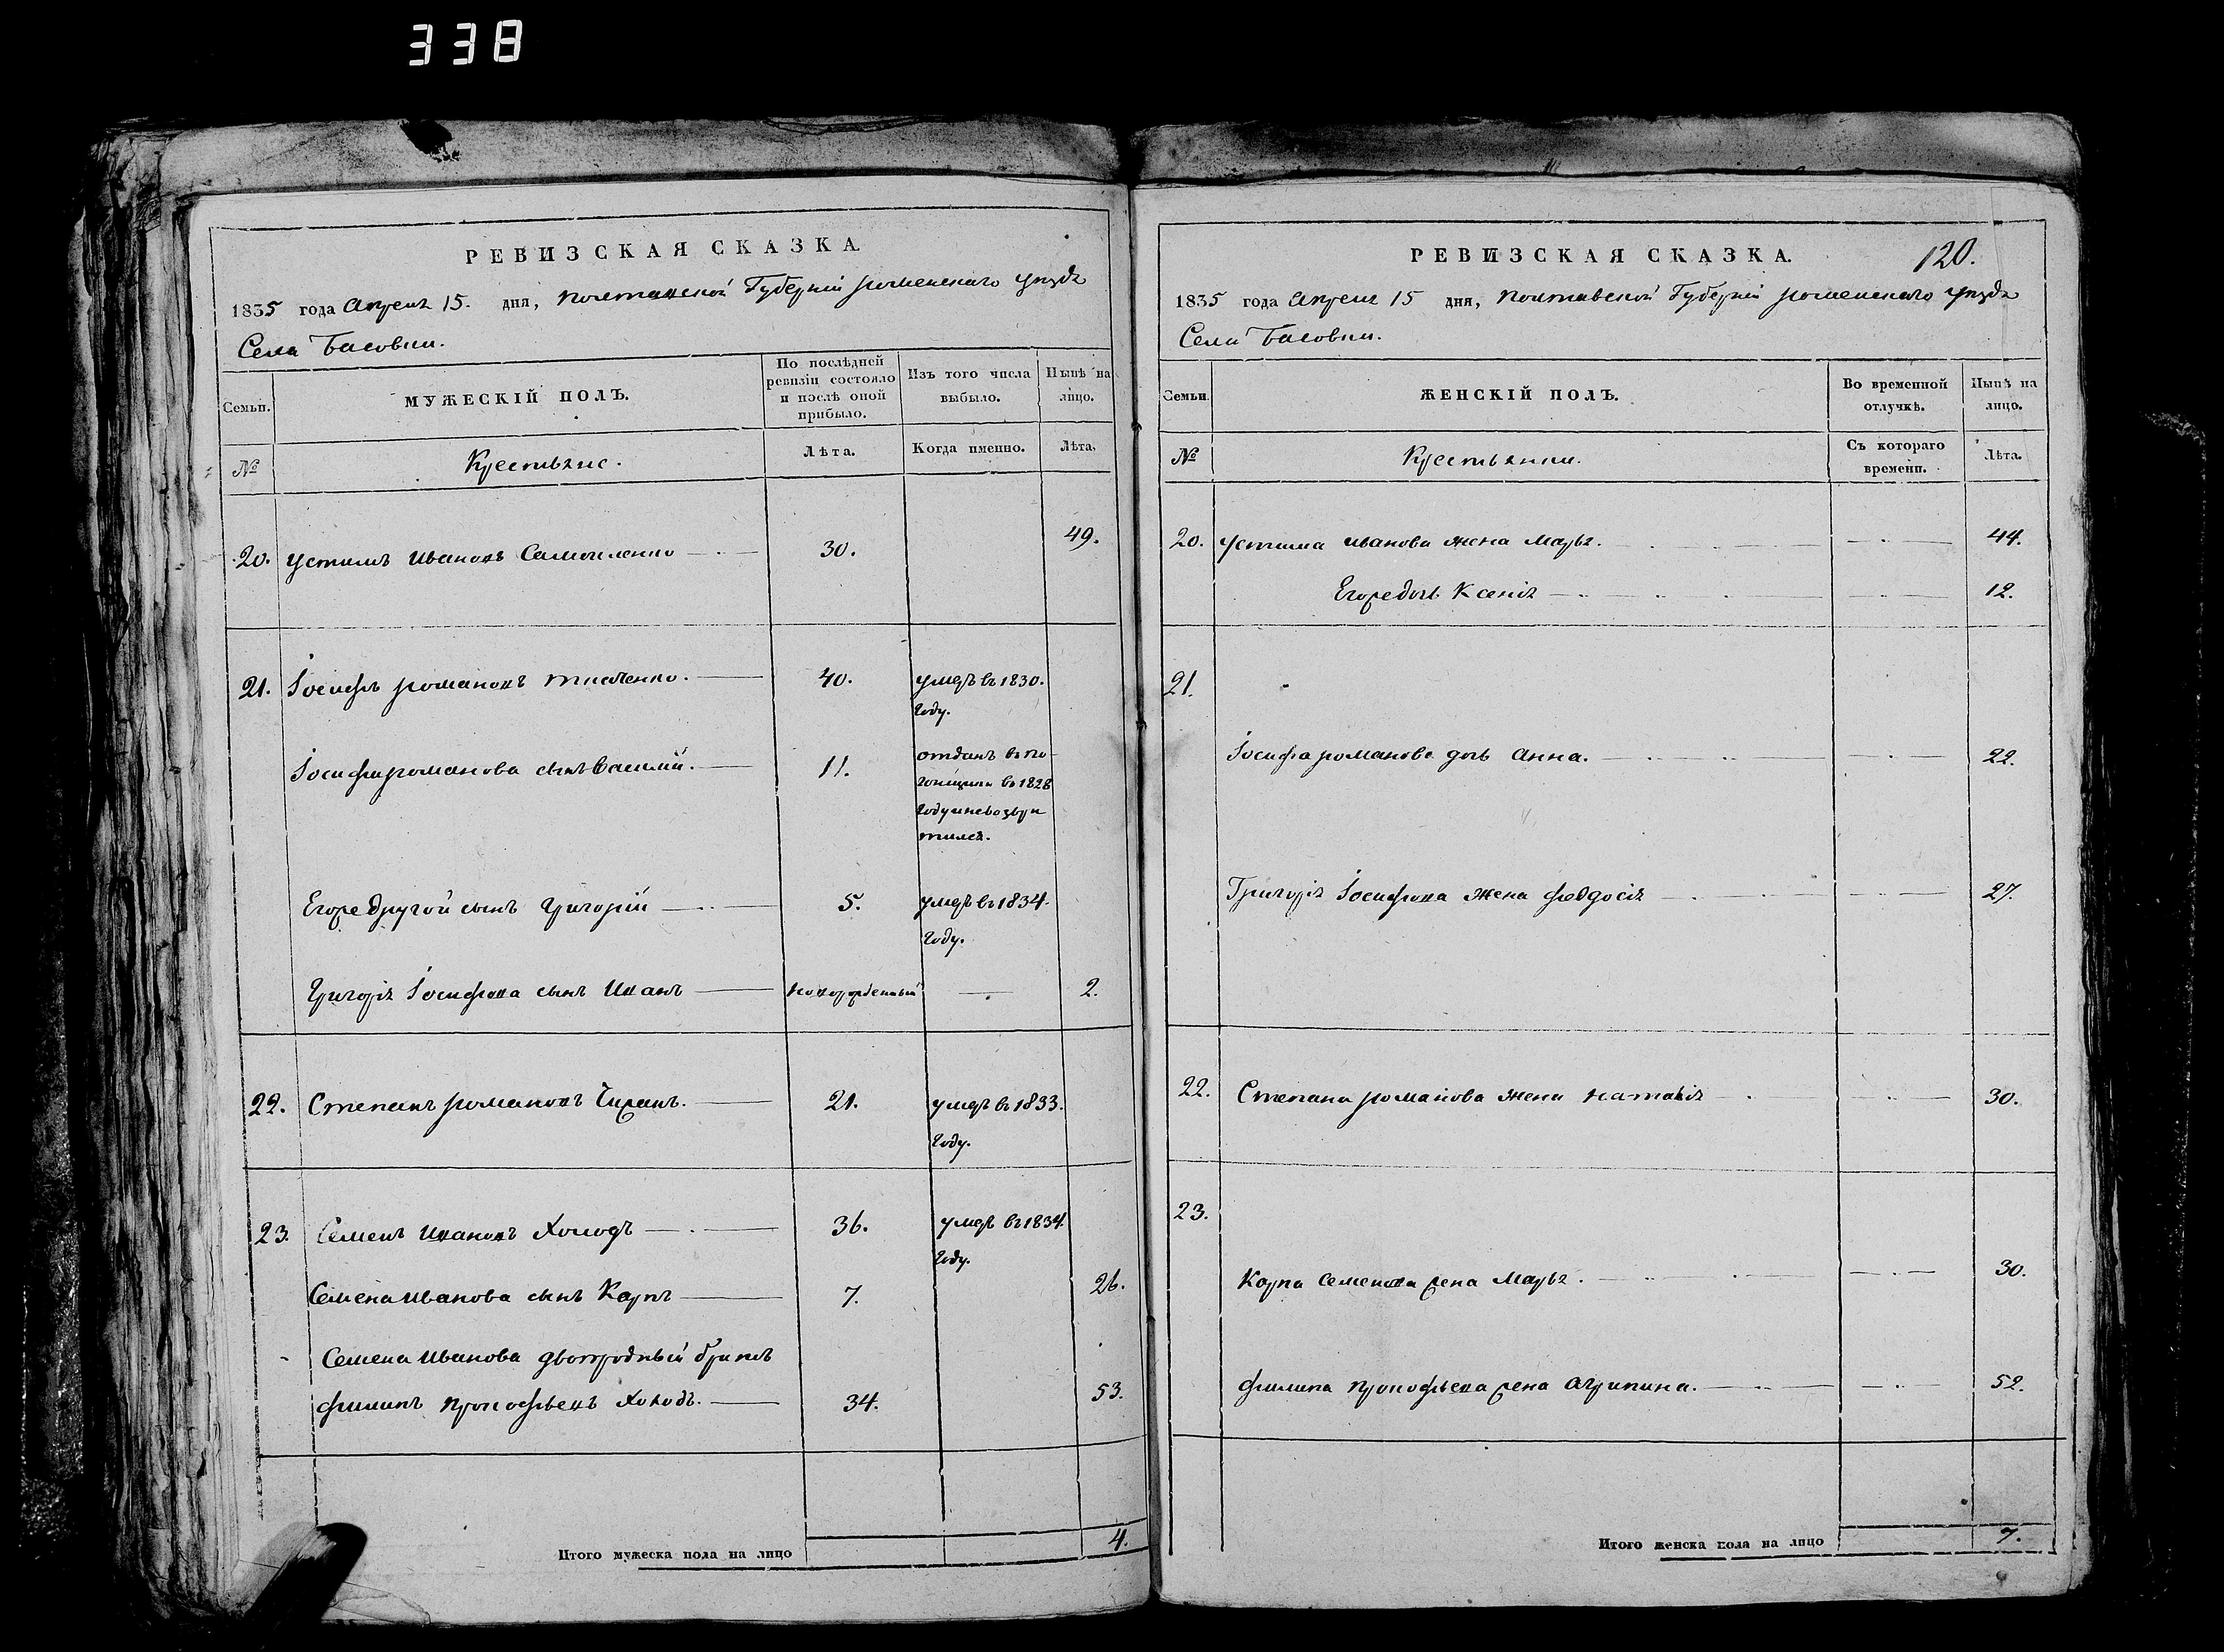 338
РЕВИЗСКАЯ СКАЗКА.
1835 года Апреля 15. дня, Полтавской Губерніи роменскаго уѣзда
Села Басовки.
Семьи.
МУЖЕСКІЙ ПОЛЪ.
По послѣдней
ревизіи состояло
и послѣ оной
прибыло.
Изъ того числа
выбыло.
Нынѣ на
лицо.
№
Крестьяне.
Лѣта.
Когда именно.
Лѣта.
20. Устимъ Ивановъ Самойленко 30. 49.
21. Іосифъ романовъ 40. умеръ въ 1830.
году.
Іосифа романова сынъ Василій. 11. отданъ въ по-
гонщики въ 1828
году и невозвра
тился.
Егоже другой сынъ Григорій 5. умеръ въ 1834.
году.
Григорія Іосифова сынъ Иванъ новорожденный 2.
22. Степанъ романовъ 21. умеръ въ 1833.
году.
23. Семенъ Ивановъ Холодъ 36. умеръ въ 1834.
году.
Семена Иванова сынъ Карпъ 7. 26.
Семена Иванова двоюродный братъ
филипъ Прокофьевъ Холодъ. 34. 53.
Итого мужеска пола на лицо 4.
РЕВИЗСКАЯ СКАЗКА.
120.
1835 года Апреля 15 дня, Полтавской Губерніи роменскаго уѣзда
Села Басовки.
Семьи.
ЖЕНСКІЙ ПОЛЪ.
Во временной
отлучкѣ.
Нынѣ на
лицо.
№
Крестьянки.
Съ котораго
времени.
Лѣта.
20. Устима Иванова жена Марья. 44.
Егоже дочь Ксенія 12.
21.
Іосифа романова дочь Анна. 22.
Григорія Іосифова жена феодосія 27.
22. Степана романова жена Наталія 30.
23.
Карпа Семенова жена Марья. 30.
филипа Прокофьева жена Агрипина. 52.
Итого женска пола на лицо 7.